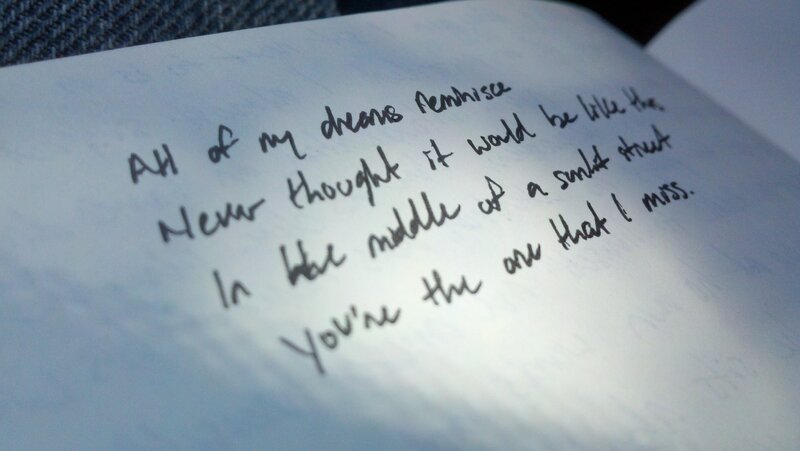 All of my dreams reminisce
Never thought it would be like this
In the middle of a sunlit street
You're the one that I miss.